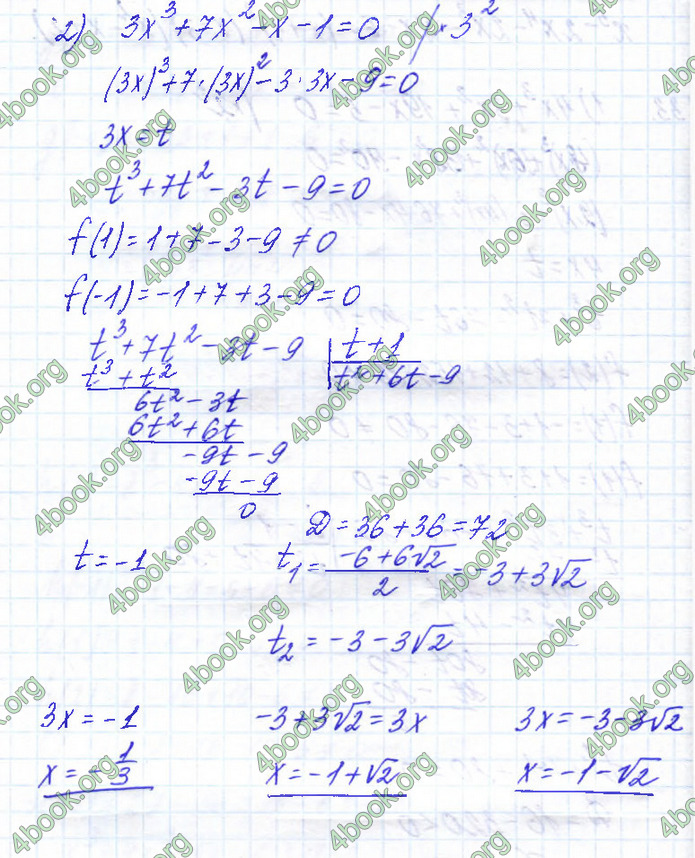 2) 3x³ + 7x² - x - 1 = 0 / · 3²
(3x)³ + 7 · (3x)² - 3 · 3x - 9 = 0
3x = t
t³ + 7t² - 3t - 9 = 0
f(1) = 1 + 7 - 3 - 9 ≠ 0
f(-1) = -1 + 7 + 3 - 9 = 0
t³ + 7t² - 3t - 9 | t + 1
t³ + t² | t² + 6t - 9
6t² - 3t
6t² + 6t
-9t - 9
-9t - 9
0
D = 36 + 36 = 72
t = -1 t₁ = (-6 + 6√2)/2 = -3 + 3√2
t₂ = -3 - 3√2
3x = -1 -3 + 3√2 = 3x 3x = -3 - 3√2
x = -1/3 x = -1 + √2 x = -1 - √2
4book.org